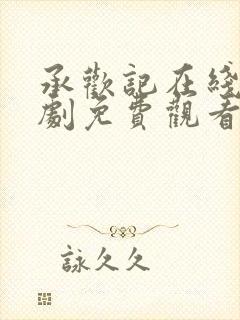 承歡記在綫
劇免費觀看
詠久久